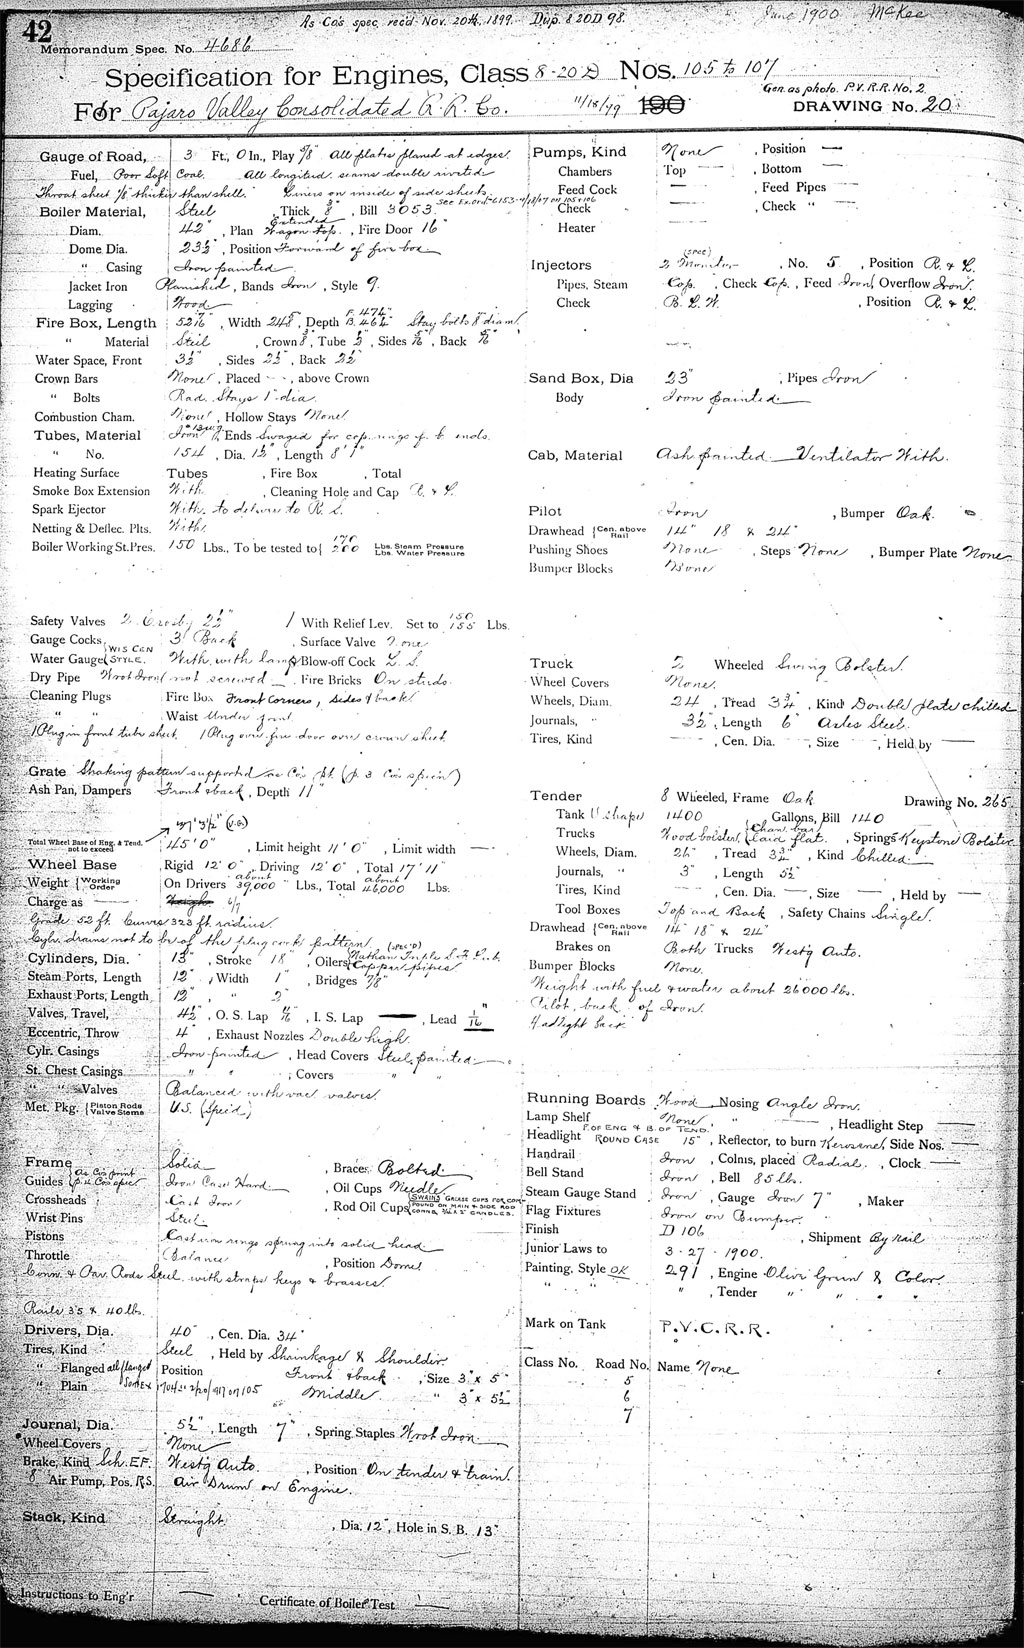 42
As Co's spec rec'd Nov. 20th, 1899. Dup. 8 20D 98.
June 1900 McKee
Memorandum Spec. No. 4686
Specification for Engines, Class 8-20 D Nos. 105 to 107
Gen. as photo. P.V.R.R. No. 2.
For Pajaro Valley Consolidated R. R. Co. 190 DRAWING No. 20
Gauge of Road, 3 Ft., 0 In., Play 5/8" All plates planed at edges.
Fuel, Poor Soft Coal. All longitud. seams double riveted
Throat sheet 1/8" thicker than shell. Liners on inside of side sheets.
Boiler Material, Steel, Thick 3/8", Bill 3053.
Diam. 42", Plan Extended Wagon top., Fire Door 16"
Dome Dia. 23½", Position Forward of fire box.
" Casing Iron painted
Jacket Iron Planished, Bands Iron, Style 9.
Lagging Wood
Fire Box, Length, Width, Depth F. 47¼" B. 46¼" Stay bolts 7/8" diam.
" Material Steel, Crown 3/8", Tube ½", Sides 5/16", Back 5/16"
Water Space, Front 3½", Sides 2½", Back 2½"
Crown Bars None, Placed - -, above Crown
" Bolts Rad. Stays 1" dia.
Combustion Cham. None, Hollow Stays None
Tubes, Material Iron, Ends Swaged for cop. rings f. b. ends.
" No. 154, Dia. 1½", Length 8' 1"
Heating Surface Tubes, Fire Box, Total
Smoke Box Extension With, Cleaning Hole and Cap R. & L.
Spark Ejector With. to deliver to R. S.
Netting & Deflec. Plts. With
Boiler Working St. Pres. 150 Lbs., To be tested to { 170 200 Lbs. Steam Pressure Lbs. Water Pressure
Safety Valves 2. Crosby 2½" 1 With Relief Lev. Set to 150 155 Lbs.
Gauge Cocks 3 Back, Surface Valve None
Water Gauge WIS CEN STYLE. With, with lamp, Blow-off Cock L. S.
Dry Pipe Wrot Iron not screwed, Fire Bricks On studs.
Cleaning Plugs Fire Box Front Corners, sides & back.
" " Waist Under
1 Plug in front tube sheet. 1 Plug over fire door over crown sheet.
Grate Shaking pattern supported as Co's pt. (p. 3 Co's spec'n)
Ash Pan, Dampers Front & back, Depth 11"
Total Wheel Base of Eng. & Tend. not to exceed 45' 0", Limit height 11' 0", Limit width —
Wheel Base Rigid 12' 0", Driving 12' 0", Total 17' 11"
Weight { Working Order On Drivers about 39,000 Lbs., Total about 46,000 Lbs.
Charge as — Weight 6/7
Grade 52 ft. Curves 323 ft. radius.
Cylr. drains not to be of the plug cock pattern.
Cylinders, Dia. 13", Stroke 18", Oilers (SPEC'D) Nathan Triple S. F. Lub. Copper pipes
Steam Ports, Length 12", Width 1", Bridges 7/8"
Exhaust Ports, Length 12" " 2"
Valves, Travel, 4½", O. S. Lap, I. S. Lap —, Lead 1/16"
Eccentric, Throw 4", Exhaust Nozzles Double high.
Cylr. Casings Iron painted, Head Covers Steel painted
St. Chest Casings " ", Covers " "
" " Valves Balanced with vac valves.
Met. Pkg. { Piston Rods Valve Stems U.S. (Spec'd)
Frame Solid, Braces Bolted
Guides As Co's print p. 4 Co's spec Iron Case Hard., Oil Cups Needle
Crossheads Cast Iron, Rod Oil Cups { SWAIN'S GREASE CUPS FOR COMP. FOUND ON MAIN & SIDE ROD CONNS.
Wrist Pins Steel
Pistons Cast iron rings sprung into solid head
Throttle Balance, Position Dome
Conn. & Par. Rods Steel, with straps keys & brasses.
Rails 35 & 40 lbs.
Drivers, Dia. 40", Cen. Dia. 34"
Tires, Kind Steel, Held by Shrinkage & Shoulder.
" Flanged all flanged Position Front & back, Size 3" x 5"
" Plain Middle " 3" x 5½"
Journal, Dia. 5½", Length 7", Spring Staples Wrot Iron.
Wheel Covers None
Brake, Kind Sch. E.F. West'g Auto., Position On tender & train.
8" Air Pump, Pos. R.S. Air Drum on Engine.
Stack, Kind Straight, Dia. 12", Hole in S. B. 13"
Instructions to Eng'r — Certificate of Boiler Test —
Pumps, Kind None, Position —
Chambers Top —, Bottom —
Feed Cock —, Feed Pipes —
Check —, Check " —
Heater —
Injectors (spec) 2 Monitor, No. 5, Position R. & L.
Pipes, Steam Cop., Check Cop., Feed Iron, Overflow Iron.
Check B. L. W., Position R. & L.
Sand Box, Dia 23", Pipes Iron
Body Iron painted
Cab, Material Ash painted. Ventilator With.
Pilot Iron, Bumper Oak.
Drawhead { Cen. above Rail 14" 18 & 24"
Pushing Shoes None, Steps None, Bumper Plate None
Bumper Blocks None
Truck 2 Wheeled Swing Bolster.
Wheel Covers None.
Wheels, Diam. 24, Tread 3¾", Kind Double plate chilled
Journals, " 3½", Length 6" Axles Steel.
Tires, Kind —, Cen. Dia. —, Size —, Held by —
Tender 8 Wheeled, Frame Oak Drawing No. 265.
Tank U shape 1400 Gallons, Bill 140
Trucks Wood bolster, { Chan. bar Laid flat., Springs Keystone Bolster
Wheels, Diam. 26", Tread 3¾", Kind Chilled
Journals, " 3", Length 5½"
Tires, Kind —, Cen. Dia. —, Size —, Held by —
Tool Boxes Top and Back, Safety Chains Single.
Drawhead { Cen. above Rail 14" 18" & 24"
Brakes on Both Trucks West'g Auto.
Bumper Blocks None.
Weight with fuel & water about 26000 lbs.
Pilot, back, of Iron.
Running Boards Wood Nosing Angle Iron.
Lamp Shelf None " —, Headlight Step —
Headlight F. OF ENG & B. OF TEND. ROUND CASE 15", Reflector, to burn Kerosene, Side Nos. —
Handrail Iron, Colms, placed Radial., Clock —
Bell Stand Iron, Bell 85 lbs.
Steam Gauge Stand Iron, Gauge Iron 7", Maker
Flag Fixtures Iron on Bumper.
Finish D 106, Shipment By rail
Junior Laws to 3 - 27 - 1900.
Painting, Style OK 291, Engine Olive Green & Color.
" " ", Tender " " " "
Mark on Tank P.V.C.R.R.
Class No. Road No. Name None
5
6
7